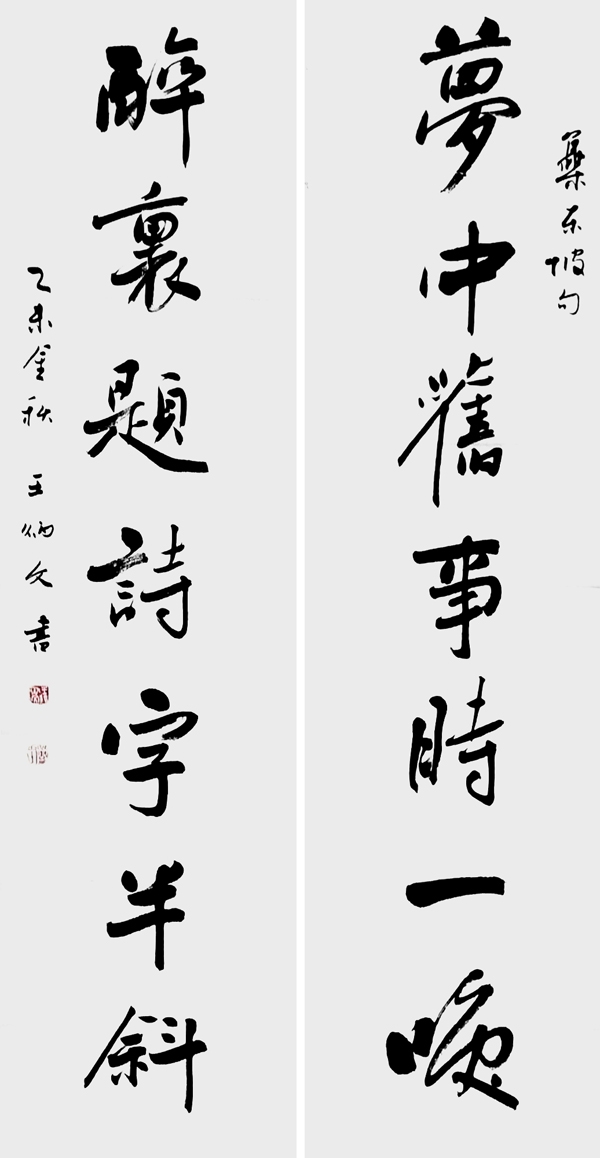 集东坡句
夢中舊事時一咲
醉裏題詩字半斜
乙未金秋 王炳文書